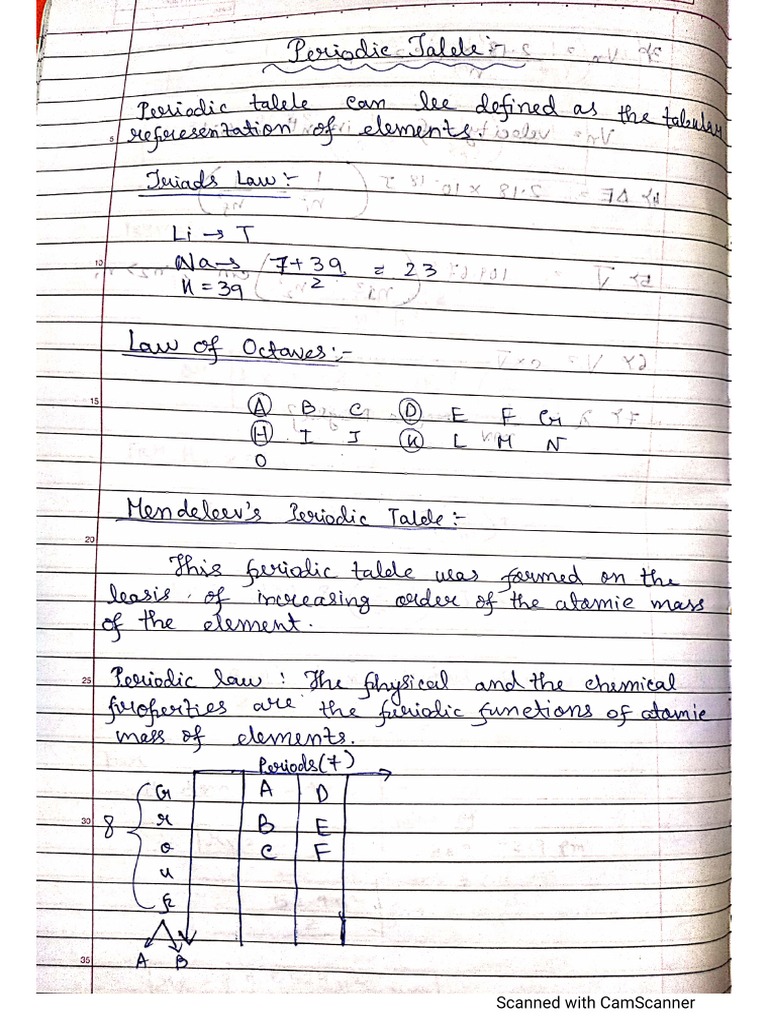 Periodic Table :-
Periodic table can be defined as the tabular
representation of elements.
Triads Law :-
Li → 7
Na → 7 + 39 / 2 = 23
K = 39
Law of Octaves :-
A B C D E F G
H I J K L M N
O
Mendeleev's Periodic Table :-
This periodic table was formed on the
basis of increasing order of the atomic mass
of the element.
Periodic law : The physical and the chemical
properties are the periodic functions of atomic
mass of elements.
Periods (7)
G A D
8 r B E
o C F
u
p
A B
5
10
15
20
25
30
35
Scanned with CamScanner